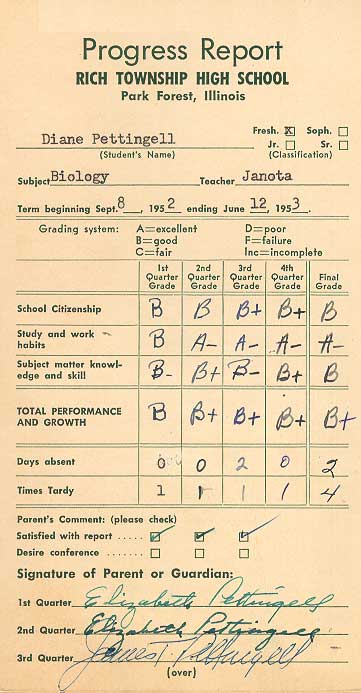 Progress Report
RICH TOWNSHIP HIGH SCHOOL
Park Forest, Illinois
Diane Pettingell Fresh. X Soph.
(Student's Name) Jr. Sr.
(Classification)
Subject Biology Teacher Janota
Term beginning Sept. 8, 1952 ending June 12, 1953.
Grading system: A=excellent D=poor
B=good F=failure
C=fair Inc=incomplete
1st Quarter Grade 2nd Quarter Grade 3rd Quarter Grade 4th Quarter Grade Final Grade
School Citizenship B B B+ B+ B
Study and work habits B A- A- A- A-
Subject matter knowledge and skill B- B+ B- B+ B
TOTAL PERFORMANCE AND GROWTH B B+ B+ B+ B+
Days absent 0 0 2 0 2
Times Tardy 1 1 1 1 4
Parent's Comment: (please check)
Satisfied with report .....
Desire conference .......
Signature of Parent or Guardian:
1st Quarter Elizabeth Pettingell
2nd Quarter Elizabeth Pettingell
3rd Quarter James T. Pettingell
(over)